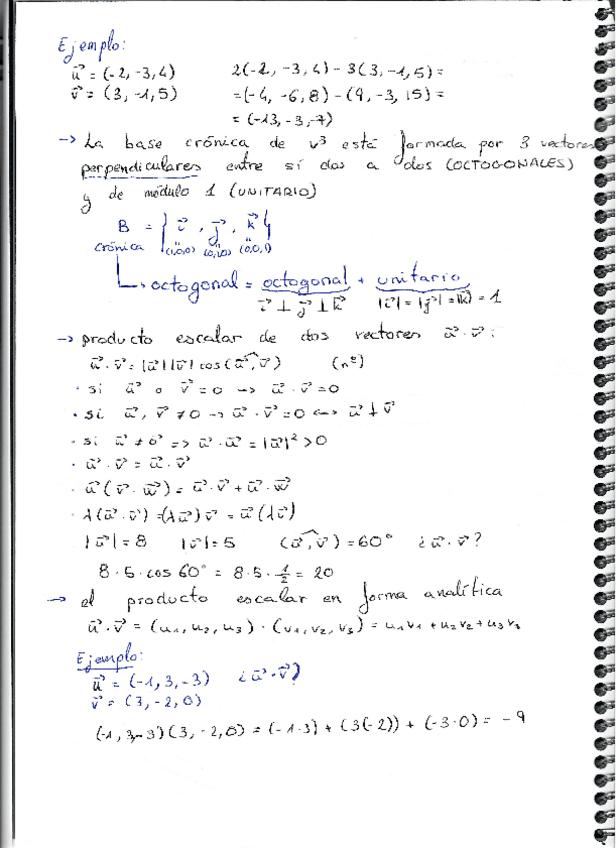 Ejemplo:
u⃗ = (-2, -3, 4)    2(-2, -3, 4) - 3(3, -1, 5) =
v⃗ = (3, -1, 5)    = (-4, -6, 8) - (9, -3, 15) =
= (-13, -3, -7)
→ La base crónica de V³ está formada por 3 vectores
perpendiculares entre sí dos a dos (OCTOGONALES)
y de módulo 1 (UNITARIO)
B = { i⃗ , j⃗ , k⃗ }
crónica (1,0,0) (0,1,0) (0,0,1)
↳ octogonal = octogonal + unitario
i⃗ ⊥ j⃗ ⊥ k⃗    |i⃗| = |j⃗| = |k⃗| = 1
→ producto escalar de dos vectores u⃗ · v⃗ :
u⃗ · v⃗ = |u⃗| |v⃗| cos(u⃗, v⃗)    (nº)
· si u⃗ o v⃗ = 0 → u⃗ · v⃗ = 0
· si u⃗, v⃗ ≠ 0 → u⃗ · v⃗ = 0 ↔ u⃗ ⊥ v⃗
· si u⃗ ≠ 0⃗ => u⃗ · u⃗ = |u⃗|² > 0
· u⃗ · v⃗ = u⃗ · v⃗
· u⃗ (v⃗ · w⃗) = u⃗ · v⃗ + u⃗ · w⃗
· λ(u⃗ · v⃗) = (λu⃗) v⃗ = u⃗ (λv⃗)
|u⃗| = 8    |v⃗| = 5    (u⃗, v⃗) = 60°    ¿ u⃗ · v⃗ ?
8 · 5 · cos 60° = 8 · 5 · 1/2 = 20
→ el producto escalar en forma analítica
u⃗ · v⃗ = (u1, u2, u3) · (v1, v2, v3) = u1v1 + u2v2 + u3v3
Ejemplo:
u⃗ = (-1, 3, -3)    ¿ u⃗ · v⃗ ?
v⃗ = (3, -2, 0)
(-1, 3, -3)(3, -2, 0) = (-1·3) + (3(-2)) + (-3·0) = -9